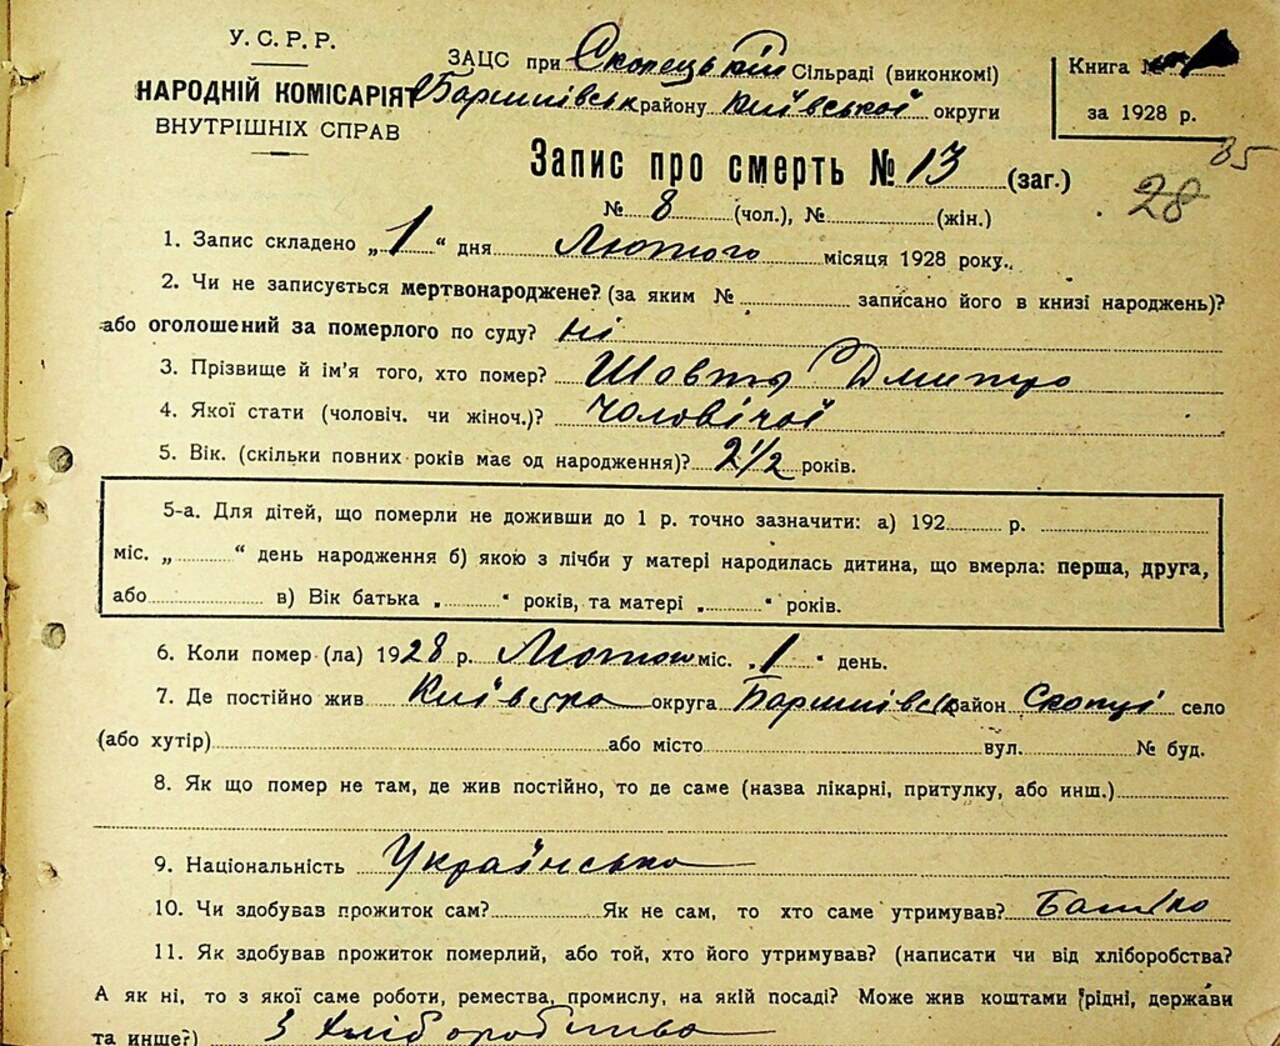 У. С. Р. Р.
НАРОДНІЙ КОМІСАРІЯТ
ВНУТРІШНІХ СПРАВ
ЗАЦС при Скопецькій Сільраді (виконкомі)
Баришівськ району Київської округи
Книга №
за 1928 р.
Запис про смерть № 13 (заг.)
35
28
№ 8 (чол.), № (жін.)
1. Запис складено „1“ дня Лютого місяця 1928 року.
2. Чи не записується мертвонароджене? (за яким № записано його в книзі народжень)?
або оголошений за померлого по суду? ні
3. Прізвище й ім'я того, хто помер? Шовтя Дмитро
4. Якої стати (чоловіч. чи жіноч.)? чоловічої
5. Вік. (скільки повних років має од народження)? 2 1/2 років.
5-а. Для дітей, що померли не доживши до 1 р. точно зазначити: а) 192 р.
міс. „ “ день народження б) якою з лічби у матері народилась дитина, що вмерла: перша, друга,
або в) Вік батька „ “ років, та матері „ “ років.
6. Коли помер (ла) 1928 р. Лютого міс. „1“ день.
7. Де постійно жив Київська округа Баришівськ район Скопці село
(або хутір) або місто вул. № буд.
8. Як що помер не там, де жив постійно, то де саме (назва лікарні, притулку, або инш.)
9. Національність Українська
10. Чи здобував прожиток сам? Як не сам, то хто саме утримував? Батько
11. Як здобував прожиток померлий, або той, хто його утримував? (написати чи від хліборобства?
А як ні, то з якої саме роботи, ремества, промислу, на якій посаді? Може жив коштами рідні, держави
та инше?) З хліборобства